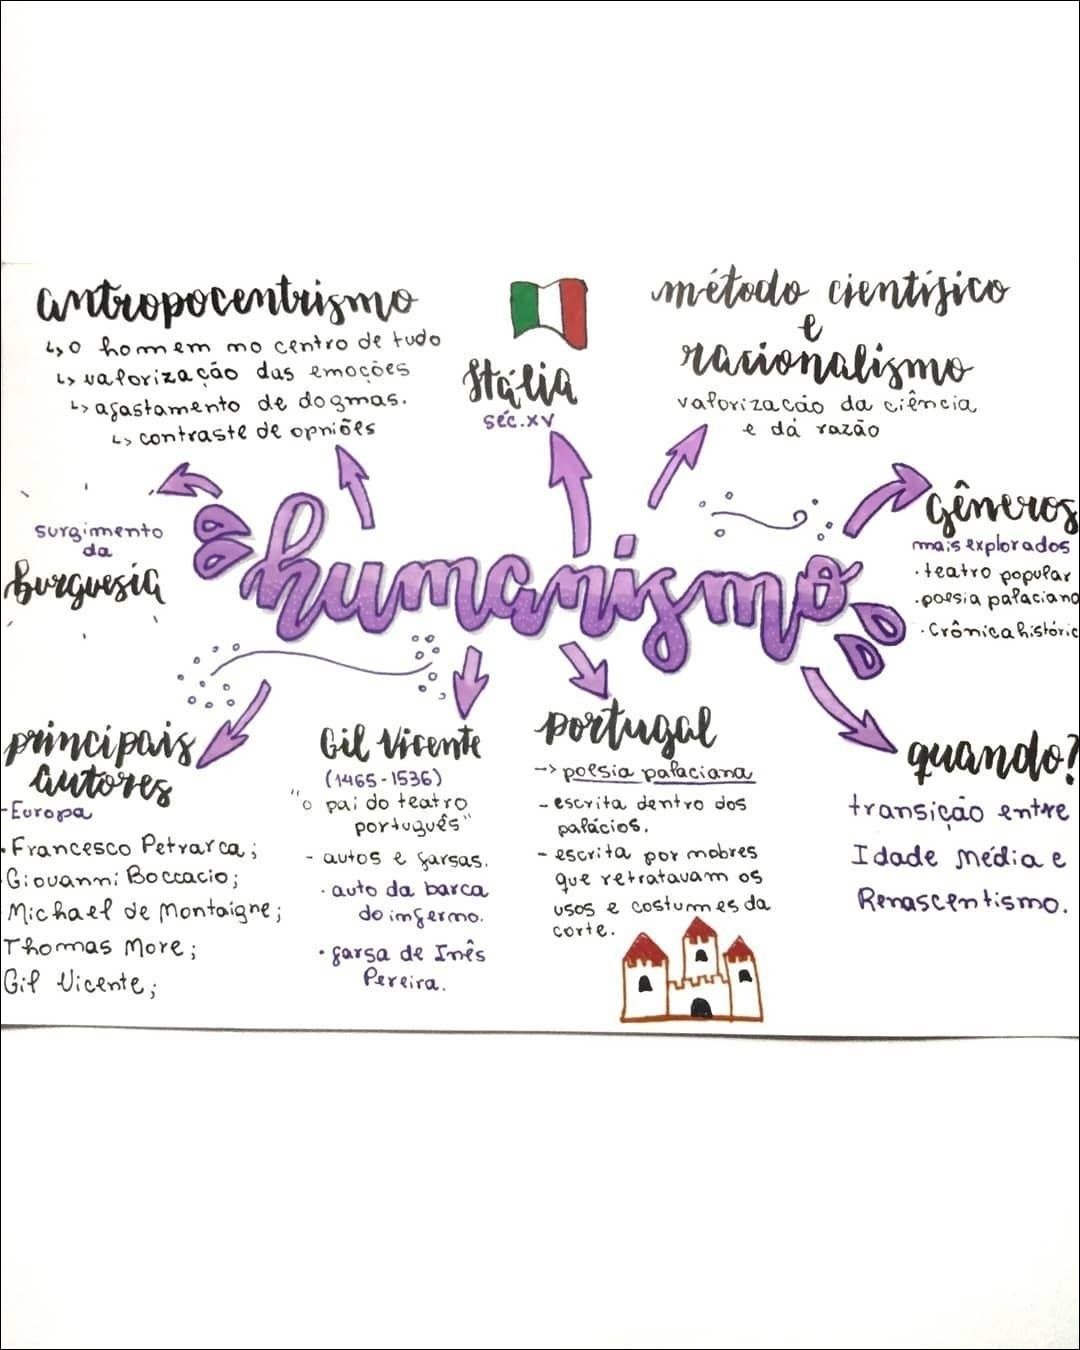 antropocentrismo
↳ o homem no centro de tudo
↳ valorização das emoções
↳ afastamento de dogmas.
↳ contraste de opniões
Itália
séc. XV
método científico
e
racionalismo
valorização da ciência
e da razão
gêneros
mais explorados
· teatro popular
· poesia palaciana
· Crônica históric
surgimento
da
burguesia
humanismo
principais
autores
- Europa
· Francesco Petrarca;
Giovanni Boccacio;
Michael de Montaigne;
Thomas More;
Gil Vicente;
Gil Vicente
(1465-1536)
"o pai do teatro
português"
- autos e farsas.
· auto da barca
do inferno.
· farsa de Inês
Pereira.
portugal
-> poesia palaciana
- escrita dentro dos
palácios.
- escrita por nobres
que retratavam os
usos e costumes da
corte.
quando?
transição entre
Idade média e
Renascentismo.